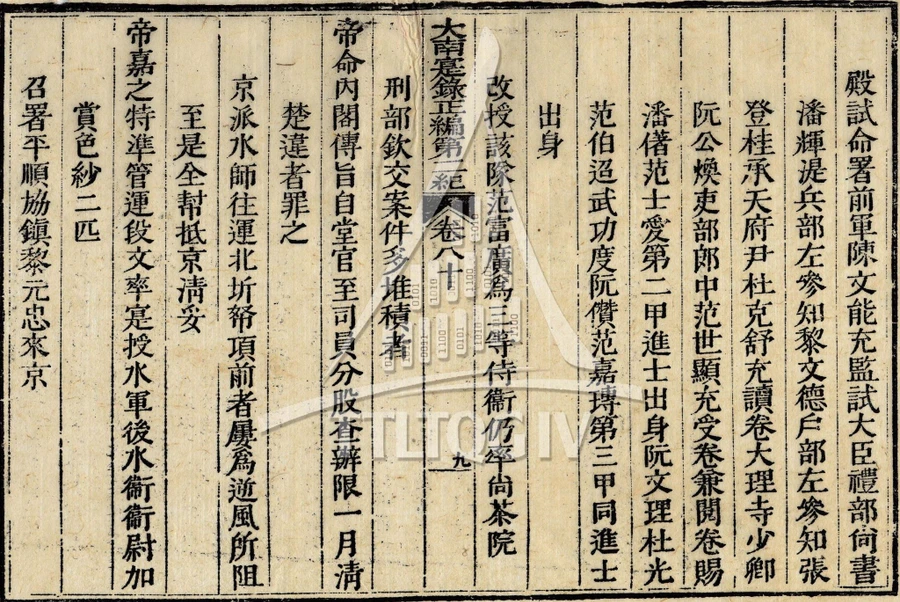 殿試命署前軍陳文能充監試大臣禮部尙書
潘輝湜兵部左參知黎文德戶部左參知張
登桂承天府尹杜克舒充讀卷大理寺少卿
阮公煥吏部郎中范世顯充受卷兼閱卷賜
潘偖范士愛第二甲進士出身阮文理杜光
范伯迢武功度阮儹范嘉瑼第三甲同進士
出身
改授該隊范富廣爲三等侍衞仍率尚茶院
大南寔錄正編第二紀 卷八十 九
刑部欽交案件多堆積者
帝命內閣傳旨自堂官至司員分股查辦限一月淸
楚違者罪之
京派水師往運北圻帑項前者屢爲逆風所阻
至是全幫抵京淸妥
帝嘉之特準管運段文率寔授水軍後水衞衞尉加
賞色紗二匹
召署平順協鎮黎元忠來京
TTLTQGIV